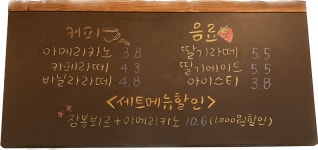 커피
아메리카노 3.8
카페라떼 4.3
바닐라라떼 4.8
음료
딸기라떼 5.5
딸기에이드 5.5
아이스티 3.8
<세트메뉴할인>
잠봉뵈르+아메리카노 10.6 (1,000원할인)